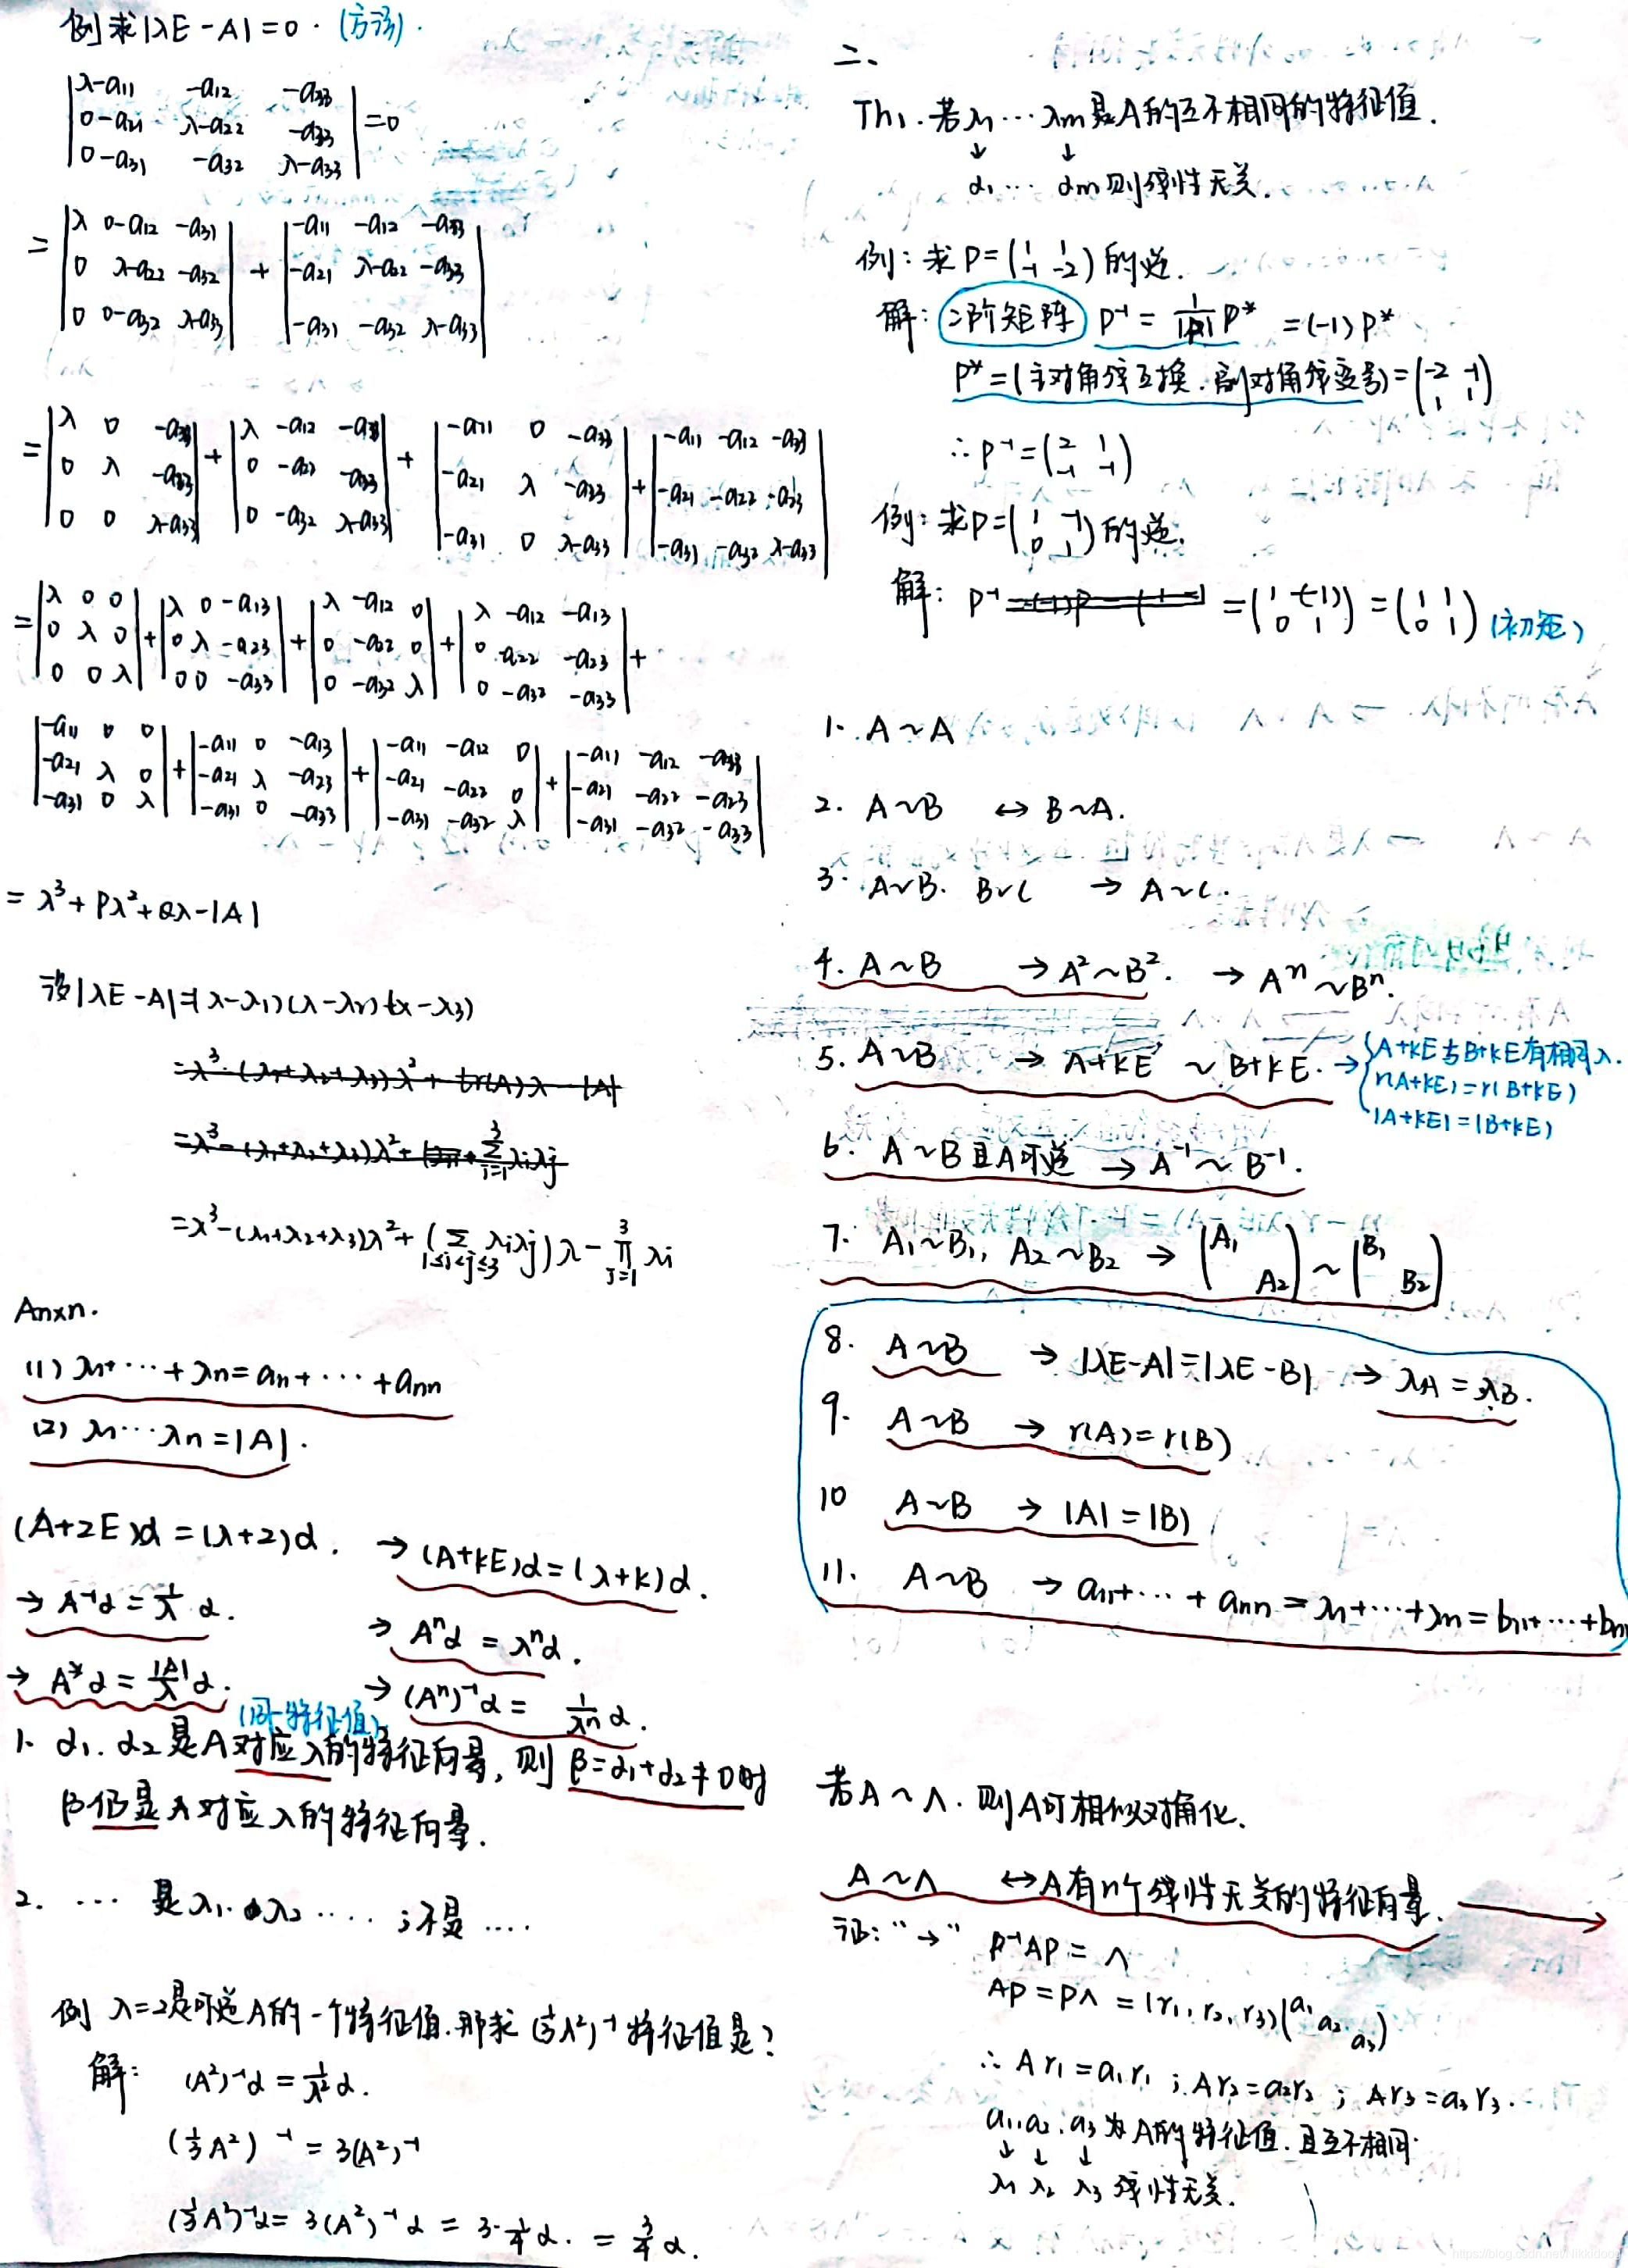 例 求|λE-A|=0.(方阵).
|λ-a11 -a12 -a33|
|0-a21 λ-a22 -a33| =0
|0-a31 -a32 λ-a33|
= |λ 0-a12 -a31| + |-a11 -a12 -a33|
|0 λ-a22 -a32| |-a21 λ-a22 -a33|
|0 0-a32 λ-a33| |-a31 -a32 λ-a33|
= |λ 0 -a33| + |λ -a12 -a33| + |-a11 0 -a33| + |-a11 -a12 -a33|
|0 λ -a33| |0 -a22 -a33| |-a21 λ -a33| |-a21 -a22 -a33|
|0 0 λ-a33| |0 -a32 λ-a33| |-a31 0 λ-a33| |-a31 -a32 λ-a33|
= |λ 0 0| + |λ 0 -a13| + |λ -a12 0| + |λ -a12 -a13| +
|0 λ 0| |0 λ -a23| |0 -a22 0| |0 -a22 -a23|
|0 0 λ| |0 0 -a33| |0 -a32 λ| |0 -a32 -a33|
|-a11 0 0| + |-a11 0 -a13| + |-a11 -a12 0| + |-a11 -a12 -a33|
|-a21 λ 0| |-a21 λ -a23| |-a21 -a22 0| |-a21 -a22 -a23|
|-a31 0 λ| |-a31 0 -a33| |-a31 -a32 λ| |-a31 -a32 -a33|
= λ³+Pλ²+Qλ-|A|
设|λE-A|=(λ-λ1)(λ-λ2)(λ-λ3)
=λ³-(λ1+λ2+λ3)λ²+tr(A)λ-|A|
=λ³-(λ1+λ2+λ3)λ²+ Σ(i=1→3) λiλj
=λ³-(λ1+λ2+λ3)λ²+(Σ(1≤i<j≤3) λiλj)λ-Π(j=1→3) λi
Anxn.
(1) λ1+⋯+λn=a11+⋯+ann
(2) λ1⋯λn=|A|.
(A+2E)α=(λ+2)α. → (A+kE)α=(λ+k)α.
→ A⁻¹α=1/λ α. → Aⁿα=λⁿα.
→ A*α=|A|/λ α. → (Aⁿ)⁻¹α= 1/λⁿ α.
(同一特征值)
1. α1.α2是A对应λ的特征向量,则β=α1+α2≠0时
β仍是A对应λ的特征向量.
2. ⋯ 是λ1.λ2⋯⋯;不是⋯⋯
例 λ=2是可逆A的一个特征值.那求(1/3A²)⁻¹特征值是?
解: (A²)⁻¹α=1/λ²α.
(1/3A²)⁻¹=3(A²)⁻¹
(1/3A²)⁻¹α=3(A²)⁻¹α=3·1/4α.=3/4α.
二、
Th1.若λ1⋯λm是A的互不相同的特征值.
↓ ↓
α1⋯ αm则线性无关.
例:求P=(1 1; -1 -2)的逆.
解:(二阶矩阵) P⁻¹=1/|P| P* =(-1)P*
P*=(主对角线互换.副对角线变号)=(-2 -1; 1 1)
∴P⁻¹=(2 1; -1 -1)
例:求P=(1 -1; 0 1)的逆.
解: P⁻¹ =(1 -(-1); 0 1)=(1 1; 0 1)(初矩)
1. A~A
2. A~B ↔ B~A.
3. A~B. B~C → A~C.
4. A~B → A²~B². → Aⁿ~Bⁿ.
5. A~B → A+kE ~ B+kE. → {A+kE与B+kE有相同λ.
r(A+kE)=r(B+kE)
|A+kE|=|B+kE|
6. A~B且A可逆 → A⁻¹~B⁻¹.
7. A1~B1, A2~B2 → (A1 A2) ~ (B1 B2)
8. A~B → |λE-A|=|λE-B| → λA=λB.
9. A~B → r(A)=r(B)
10 A~B → |A|=|B|
11. A~B → a11+⋯+ann=λ1+⋯+λn=b11+⋯+bnn
若A~Λ.则A可相似对角化.
A~Λ ↔A有n个线性无关的特征向量.
证:“→” P⁻¹AP=Λ
AP=PΛ=(r1,r2,r3)(a1 a2 a3)
∴Ar1=a1r1;Ar2=a2r2;Ar3=a3r3.
a1.a2.a3为A的特征值.且互不相同.
↓ ↓ ↓
λ1 λ2 λ3线性无关.